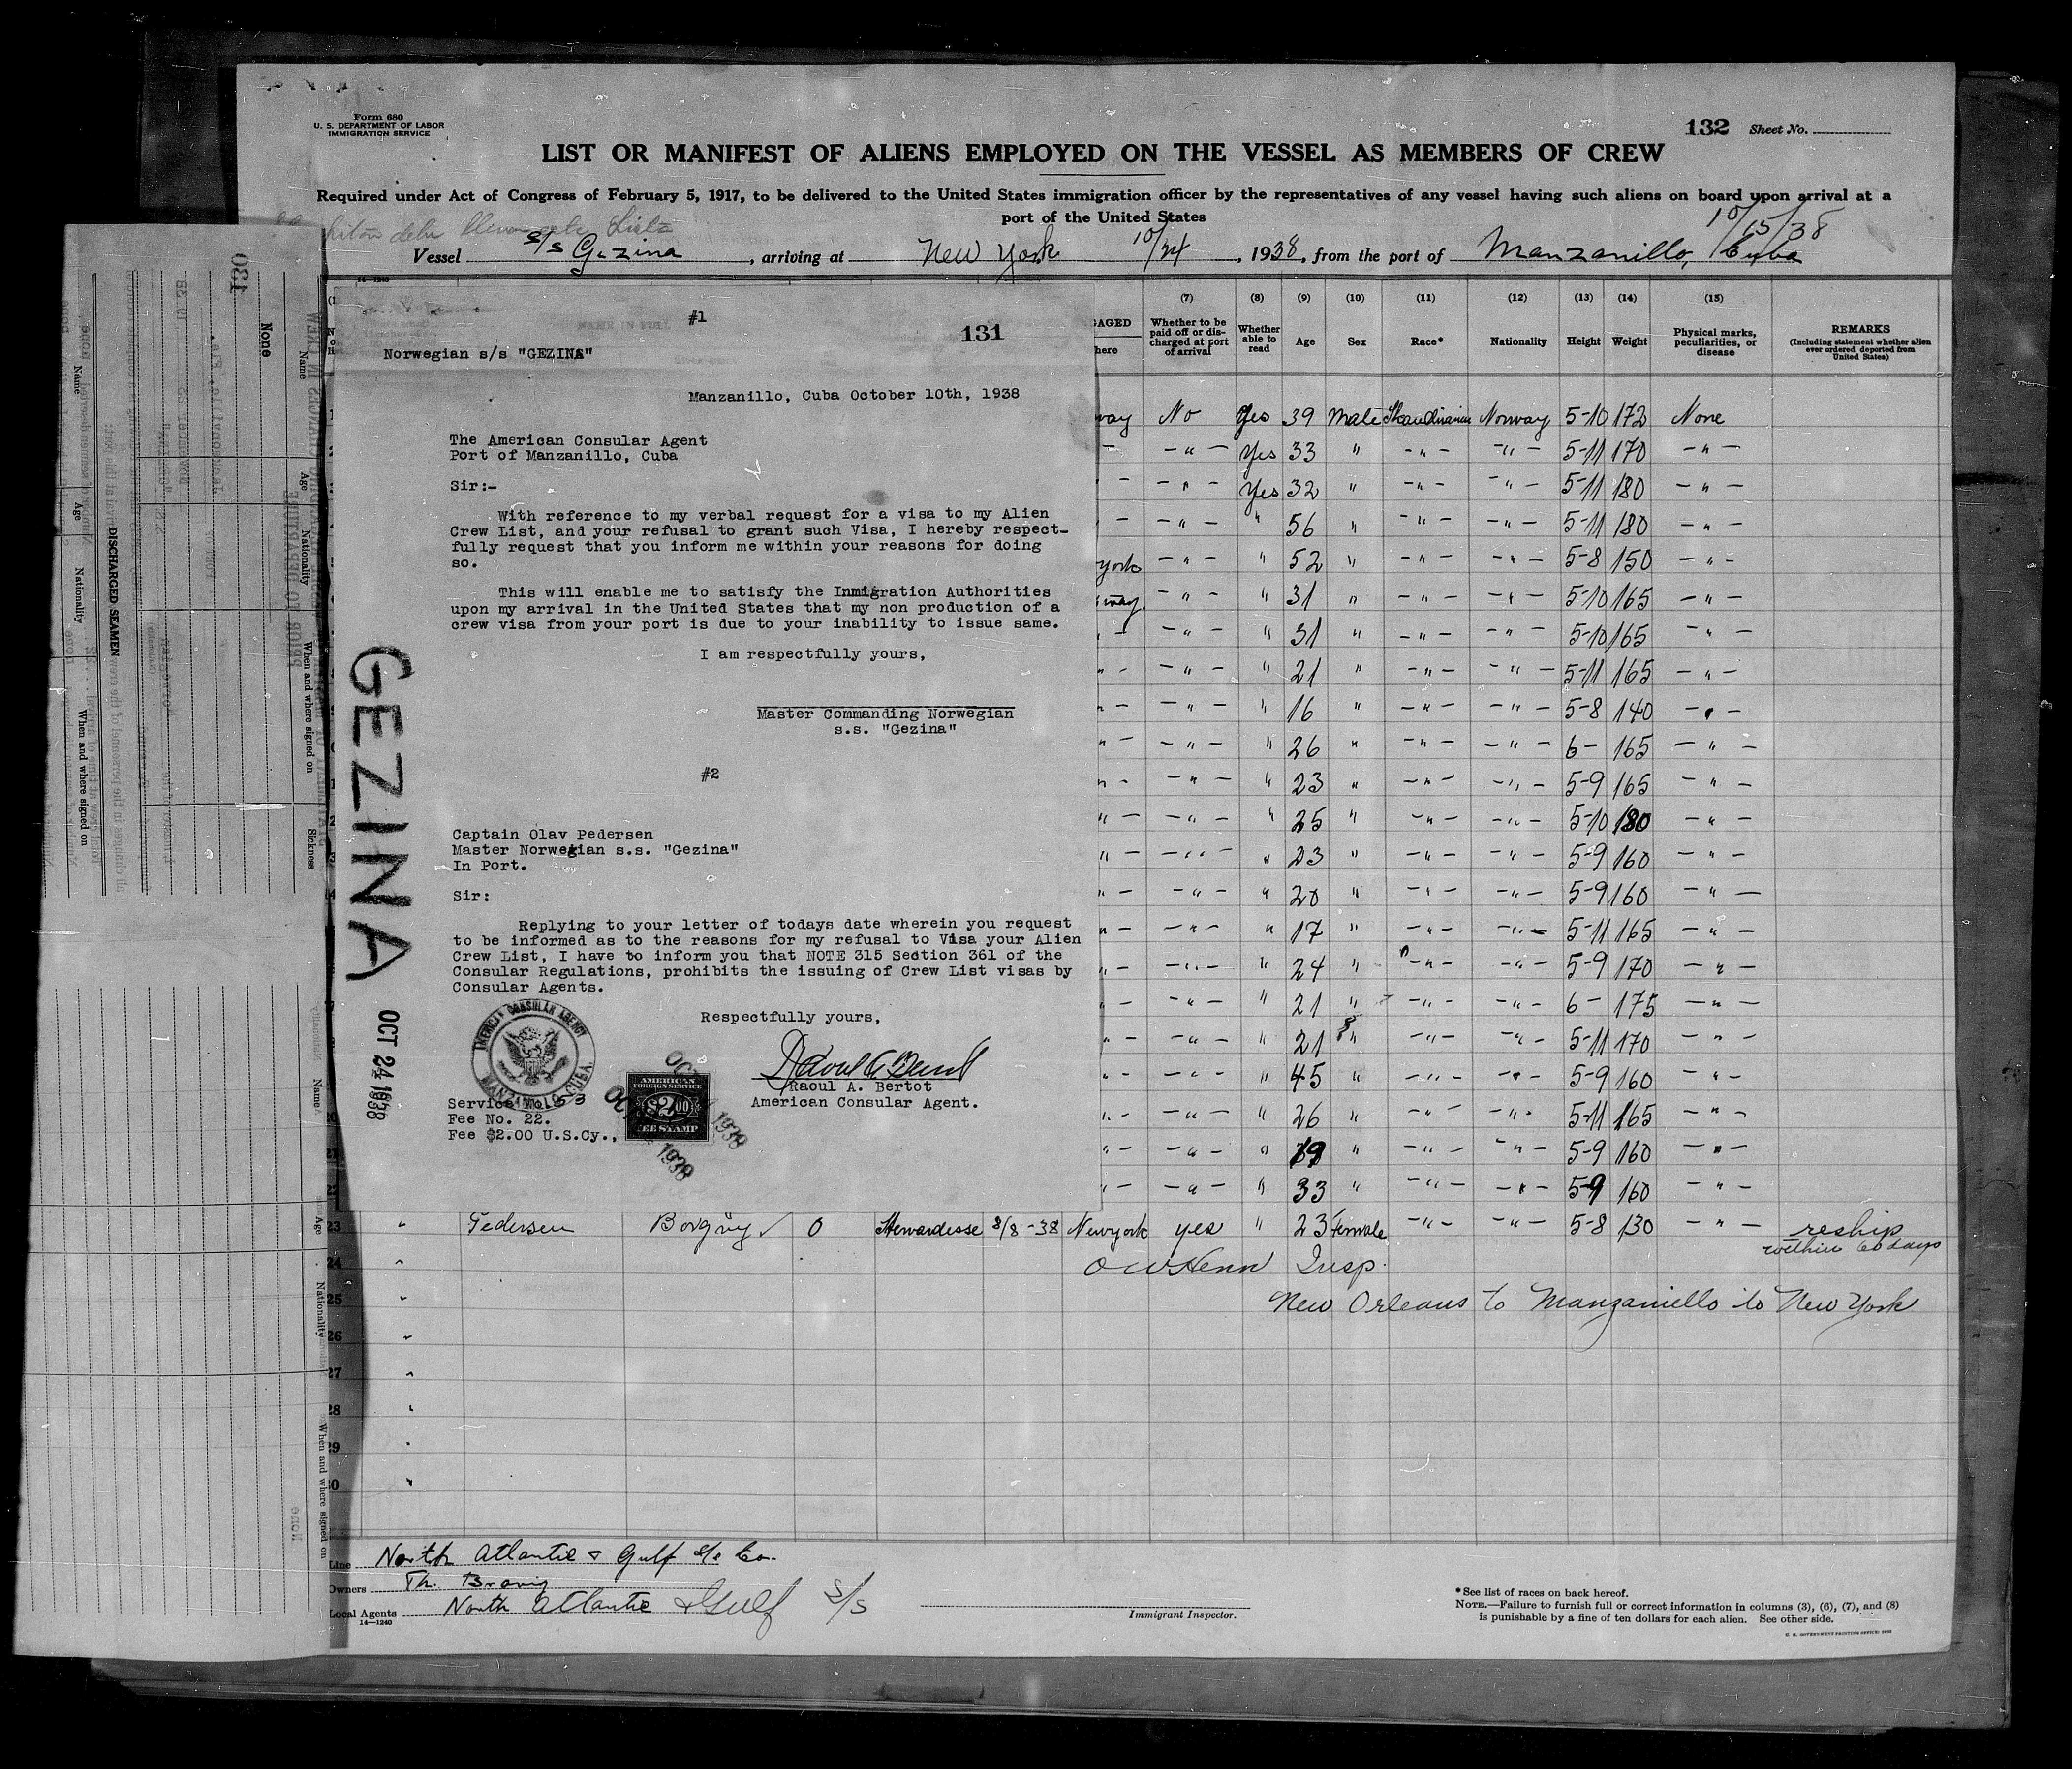 Form 680
U. S. DEPARTMENT OF LABOR
IMMIGRATION SERVICE
132 Sheet No.
LIST OR MANIFEST OF ALIENS EMPLOYED ON THE VESSEL AS MEMBERS OF CREW
Required under Act of Congress of February 5, 1917, to be delivered to the United States immigration officer by the representatives of any vessel having such aliens on board upon arrival at a
port of the United States
10/15/38
Vessel s/s Gezina, arriving at New York 10/24, 1938, from the port of Manzanillo, Cuba
#1
131
Norwegian s/s "GEZINA"
Manzanillo, Cuba October 10th, 1938
The American Consular Agent
Port of Manzanillo, Cuba
Sir:-
With reference to my verbal request for a visa to my Alien
Crew List, and your refusal to grant such Visa, I hereby respect-
fully request that you inform me within your reasons for doing
so.
This will enable me to satisfy the Inmigration Authorities
upon my arrival in the United States that my non production of a
crew visa from your port is due to your inability to issue same.
I am respectfully yours,
Master Commanding Norwegian
s.s. "Gezina"
#2
Captain Olav Pedersen
Master Norwegian s.s. "Gezina"
In Port.
Sir:
Replying to your letter of todays date wherein you request
to be informed as to the reasons for my refusal to Visa your Alien
Crew List, I have to inform you that NOTE 315 Section 361 of the
Consular Regulations, prohibits the issuing of Crew List visas by
Consular Agents.
Respectfully yours,
Raoul A. Bertot
American Consular Agent.
AMERICAN CONSULAR AGENCY
MANZANILLO, CUBA.
Service No. 53
Fee No. 22.
Fee $2.00 U.S.Cy.,
AMERICAN
FOREIGN SERVICE
$2.00
FEE STAMP
GEZINA
OCT 24 1938
1938
1938
130
None
Name
Age
Nationality
When and where signed on
Sickness
DISCHARGED SEAMEN
Name
Age
Nationality
When and where signed on
GAGED
here
(7) (8) (9) (10) (11) (12) (13) (14) (15)
Whether to be paid off or discharged at port of arrival
Whether able to read
Age
Sex
Race*
Nationality
Height
Weight
Physical marks, peculiarities, or disease
REMARKS
(Including statement whether alien ever ordered deported from United States)
way No Yes 39 Male Skandinavian Norway 5-10 172 None
– – " – Yes 33 " – " – – " – 5-11 170 – " –
– – " – Yes 32 " – " – – " – 5-11 180 – " –
– – " – " 56 " – " – – " – 5-11 180 – " –
york – " – " 52 " – " – – " – 5-8 150 – " –
way – " – " 31 " – " – – " – 5-10 165 – " –
– – " – " 31 " – " – – " – 5-10 165 – " –
" – – " – " 21 " – " – – " – 5-11 165 – " –
" – – " – " 16 " – " – – " – 5-8 140 – " –
" – – " – " 26 " – " – – " – 6- 165 – " –
" – – " – " 23 " – " – – " – 5-9 165 – " –
" – – " – " 25 " – " – – " – 5-10 180 – " –
" – – " – " 23 " – " – – " – 5-9 160 – " –
" – – " – " 20 " – " – – " – 5-9 160 – " –
" – – " – " 17 " – " – – " – 5-11 165 – " –
" – – " – " 24 " – " – – " – 5-9 170 – " –
" – – " – " 21 " – " – – " – 6- 175 – " –
" – – " – " 21 " – " – – " – 5-11 170 – " –
" – – " – " 45 " – " – – " – 5-9 160 – " –
" – – " – " 26 " – " – – " – 5-11 165 – " –
" – – " – " 19 " – " – – " – 5-9 160 – " –
" – – " – " 33 " – " – – " – 5-9 160 – " –
23 Pedersen Borgny 0 Stewardesse 8/8-38 Newyork yes " 23 Female – " – – " – 5-8 130 – " – reship
within 60 days
24 Insp.
25 New Orleans to Manzaniello to New York
26
27
28
29
30
Line North Atlantic & Gulf s/s Co.
Owners Th. Brovig
Local Agents North Atlantic & Gulf s/s
14—1240
Immigrant Inspector.
*See list of races on back hereof.
NOTE.—Failure to furnish full or correct information in columns (3), (6), (7), and (8)
is punishable by a fine of ten dollars for each alien. See other side.